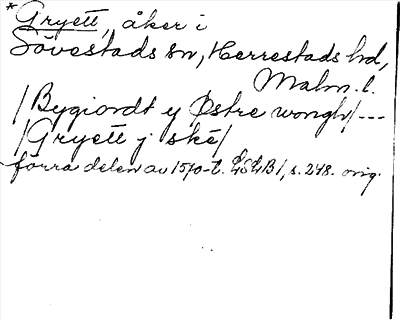 *Gryett, åker i
Sövestads sn, Herrestads hd,
Malm. l.
/Bygiordt y Østre wongh/---
/Gryett j ské/
förra delen av 1570-t. LSLB1, s. 248. orig.